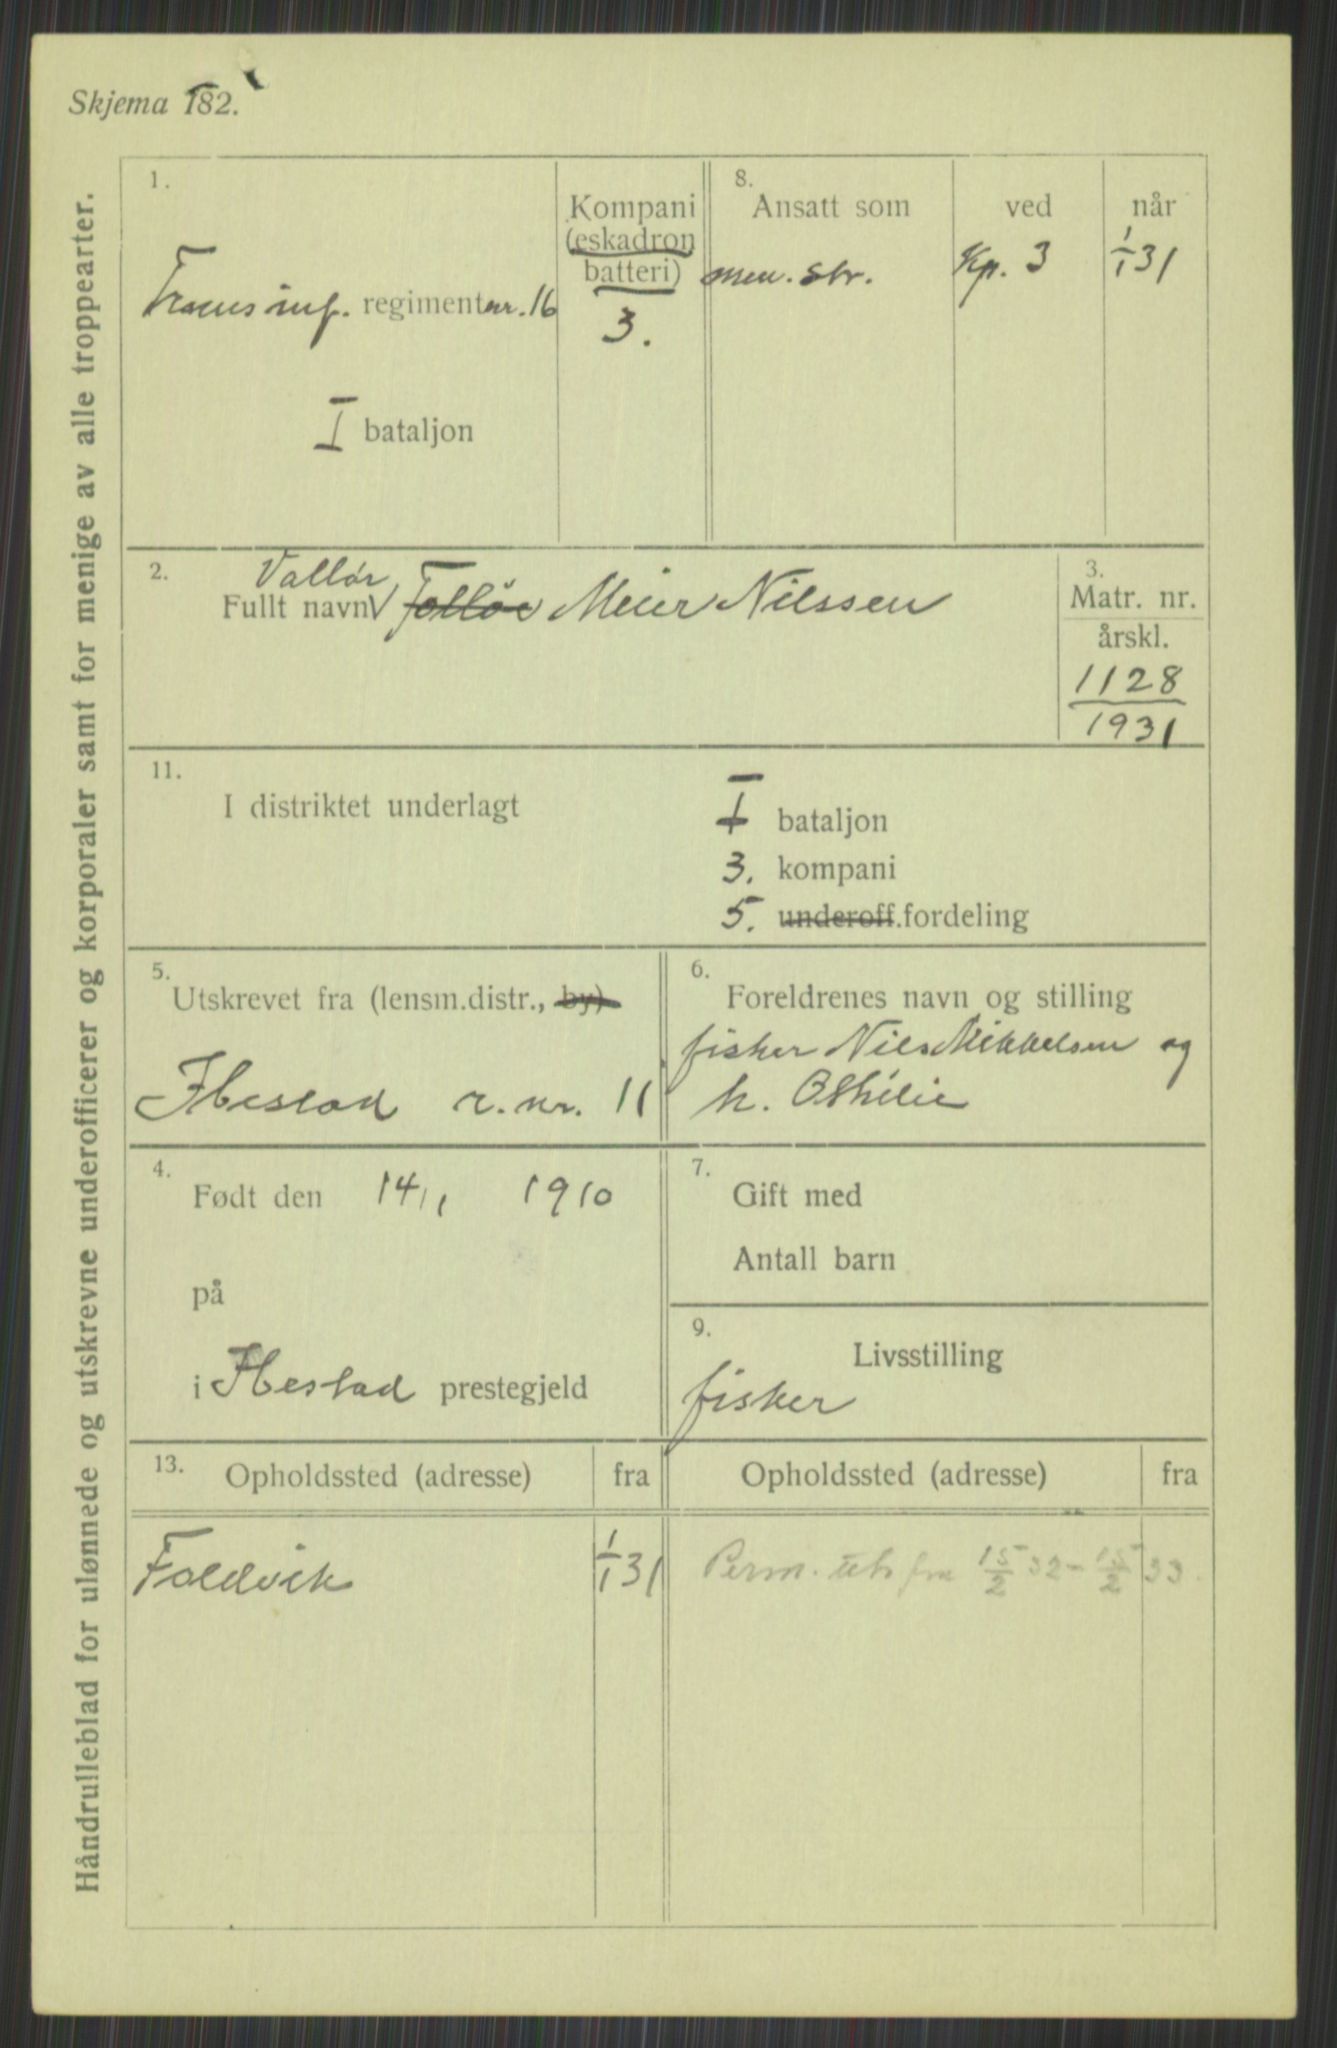 Skjema 182.
Håndrulleblad for ulønnede og utskrevne underofficerer og korporaler samt for menige av alle troppearter.
1.
Troms inf. regiment nr. 16
I bataljon
Kompani
(eskadron
batteri)
3.
8.
Ansatt som
ved
når
men. str.
Kp. 3
1/1 31
2.
Vallør
Fullt navn V Følløv Meier Nilssen
3.
Matr. nr.
årskl.
1128
1931
11.
I distriktet underlagt
I bataljon
3. kompani
5. underoff.fordeling
5.
Utskrevet fra (lensm.distr., by)
Ibestad r. nr. 11
6.
Foreldrenes navn og stilling
fisker Nils Mikkelsen og
h. Othilie
4.
Født den 14/1 1910
på
i Ibestad prestegjeld
7.
Gift med
Antall barn
9.
Livsstilling
fisker
13.
Opholdssted (adresse)
fra
Opholdssted (adresse)
fra
Foldvik
1/1 31
Perm. uts fra 15/2 32 - 15/2 33.